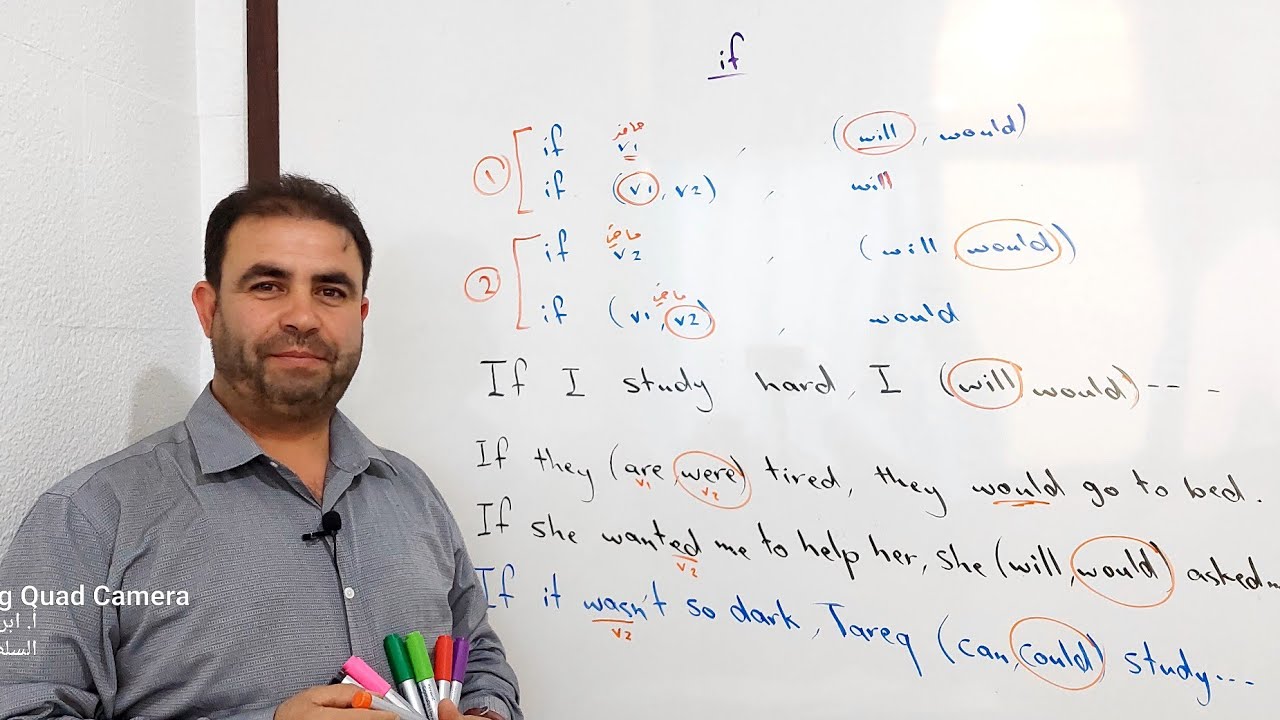 if
1 if حاضر v1 , (will, would)
if (v1, v2) , will
2 if ماضي v2 , (will would)
if (v1, ماضي v2) , would
If I study hard, I (will would)-- -
If they (are were) tired, they would go to bed.
v1 v2
If she wanted me to help her, she (will, would) asked...
v2
If it wasn't so dark, Tareq (can, could) study...
v2
g Quad Camera
أ. ابر
السلم